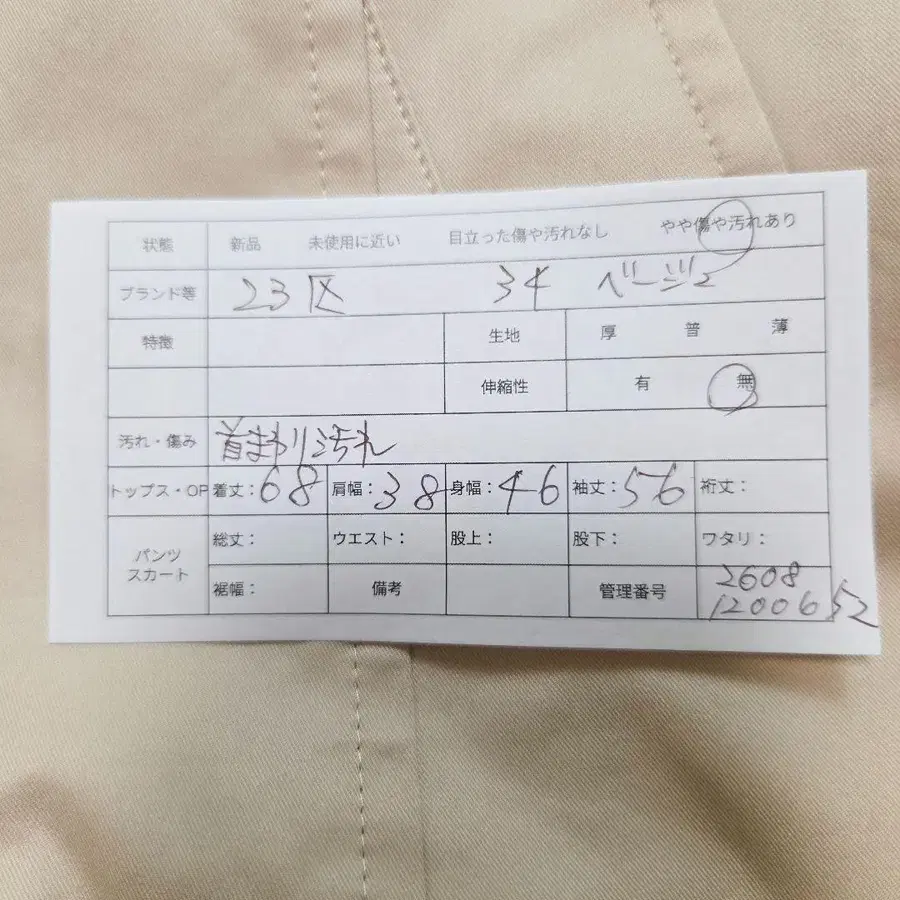 状態 新品 未使用に近い 目立った傷や汚れなし やや傷や汚れあり
ブランド等 23区 34 ベージュ
特徴 生地 厚 普 薄
伸縮性 有 無
汚れ・傷み 首まわり汚れ
トップス・OP 着丈：68 肩幅：38 身幅：46 袖丈：56 裄丈：
パンツ スカート 総丈： ウエスト： 股上： 股下： ワタリ：
裾幅： 備考 管理番号 2608
1200652